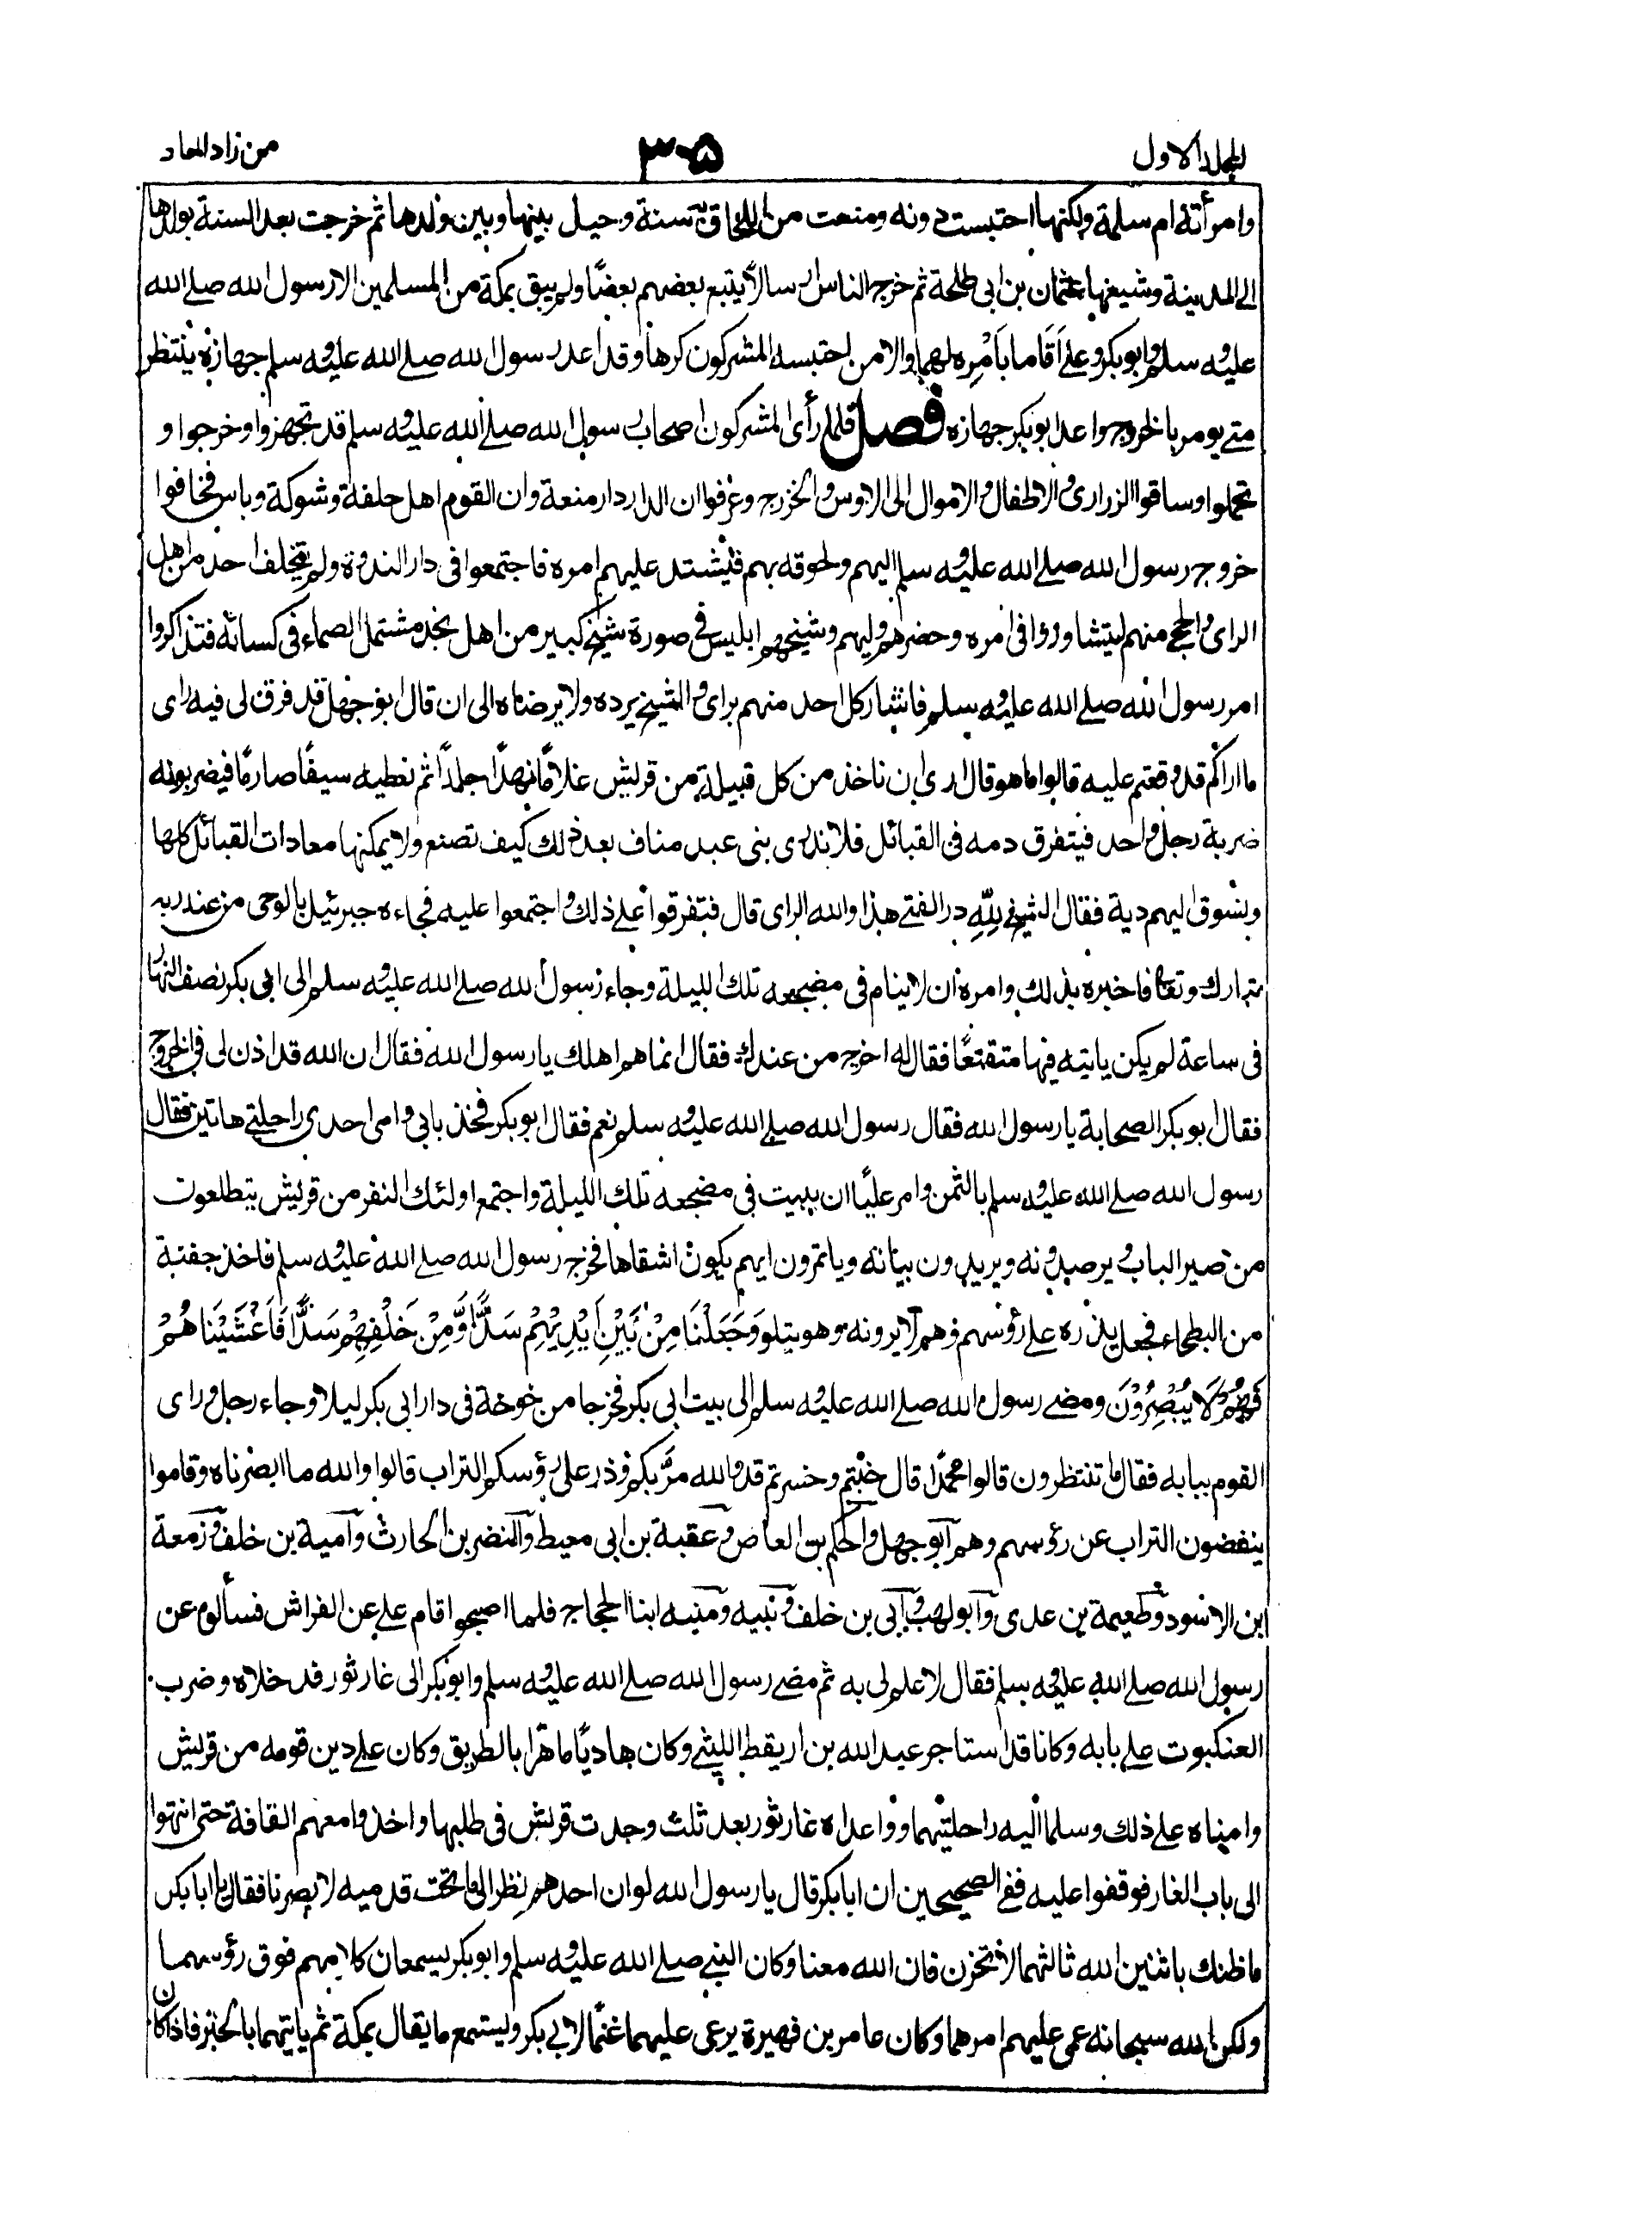 المجلد الاول
٣٠٥
من زاد المعاد
وامرأته ام سلمة ولكنها احتبست دونه ومنعت من اللحاق به سنة وحيل بينها وبين ولدها ثم خرجت بعد السنة بولدها
الى المدينة وشيعها عثمان بن ابى طلحة ثم خرج الناس ارسالاً يتبع بعضهم بعضًا ولم يبق بمكة من المسلمين الا رسول الله صلے الله
عليه وسلم وابو بكر وعلے اَقَاما باَمْرِه لهما والا من احتبسه المشركون كرها وقد اعد رسول الله صلے الله عليه وسلم جهازه ينتظر
متے يومر بالخروج واعد ابو بكر جهازه فصل فلما رأى المشركون اصحاب رسول الله صلے الله عليه وسلم قد تجهزوا وخرجوا و
تحملوا وساقوا الزرارى والاطفال والاموال الى الاوس والخزرج وعرفوا ان الدار دار منعة وان القوم اهل حلقة وشوكة وباس فخافوا
خروج رسول الله صلے الله عليه وسلم اليهم ولحوقه بهم فيشتد عليهم امره فاجتمعوا فى دار الندوة ولم يتخلف احد من اهل
الراى والحجى منهم ليتشاوروا فى امره وحضرهم وليهم وشيخهم ابليس فى صورة شيخ كبير من اهل نجد مشتمل الصماء فى كسائه فتذاكروا
امر رسول الله صلے الله عليه وسلم فاشار كل احد منهم براى والشيخ يرده ولا يرضاه الى ان قال ابو جهل قد فرق لى فيه راى
ما اراكم قد وقعتم عليه قالوا ما هو قال ارى ان ناخذ من كل قبيلة من قريش غلامًا نهدًا جلدًا ثم نعطيه سيفًا صارمًا فيضربونه
ضربة رجل واحد فيتفرق دمه فى القبائل فلا ندرى بنى عبد مناف بعد ذلك كيف تصنع ولا يمكنها معادات القبائل كلها
ونسوق اليهم دية فقال الشيخ لِلّٰهِ در الفتے هذا والله الراى قال فتفرقوا علے ذلك واجتمعوا عليه فجاءه جبرئيل بالوحى من عند ربه
تبارك وتعالى فاخبره بذلك وامره ان لا ينام فى مضجعه تلك الليلة وجاء رسول الله صلے الله عليه وسلم الى ابى بكر نصف النهار
فى ساعة لم يكن ياتيه فيها متقنعًا فقال له اخرج من عندك فقال انما هم اهلك يا رسول الله فقال ان الله قد اذن لى فى الخروج
فقال ابو بكر الصحابة يا رسول الله فقال رسول الله صلے الله عليه وسلم نعم فقال ابو بكر فخذ بابى وامى احدى راحلتے هاتين فقال
رسول الله صلے الله عليه وسلم بالثمن وامر عليًا ان يبيت فى مضجعه تلك الليلة واجتمع اولئك النفر من قريش يتطلعون
من صير الباب ويرصدونه ويريدون بياته وياتمرون ايهم يكون اشقاها فخرج رسول الله صلے الله عليه وسلم فاخذ حفنة
من البطحاء فجعل يذره علے رؤسهم وهم لا يرونه وهو يتلو وَجَعَلْنَا مِنْ بَيْنِ اَيْدِيْهِمْ سَدًّا وَّمِنْ خَلْفِهِمْ سَدًّا فَاَغْشَيْنَاهُمْ
فَهُمْ لَا يُبْصِرُوْنَ ومضے رسول الله صلے الله عليه وسلم الى بيت ابى بكر فخرجا من خوخة فى دار ابى بكر ليلا وجاء رجل وراى
القوم ببابه فقال ما تنتظرون قالوا محمدًا قال خبتم وخسرتم قد والله مرّ بكم وذر على رؤسكم التراب قالوا والله ما ابصرناه وقاموا
ينفضون التراب عن رؤسهم وهم ابو جهل والحكم بن العاص وعقبة بن ابى معيط والنضر بن الحارث وامية بن خلف وزمعة
ابن الاسود وطعيمة بن عدى وابو لهب وابى بن خلف ونبيه ومنبه ابنا الحجاج فلما اصبحوا قام على عن الفراش فسألوه عن
رسول الله صلے الله عليه وسلم فقال لا علم لى به ثم مضے رسول الله صلے الله عليه وسلم وابو بكر الى غار ثور فدخلاه وضرب
العنكبوت علے بابه وكانا قد استاجر عبد الله بن اريقط الليثے وكان هاديًا ماهرًا بالطريق وكان علے دين قومه من قريش
وامناه علے ذلك وسلما اليه راحلتيهما وواعداه غار ثور بعد ثلث وجدت قريش فى طلبهما واخذوا معهم القافة حتى انتهوا
الى باب الغار فوقفوا عليه ففے الصحيحين ان ابا بكر قال يا رسول الله لو ان احدهم نظر الى ما تحت قدميه لابصرنا فقال يا ابا بكر
ما ظنك باثنين الله ثالثهما لا تحزن فان الله معنا وكان النبے صلے الله عليه وسلم وابو بكر يسمعان كلامهم فوق رؤسهما
ولكن الله سبحانه عمى عليهم امرهما وكان عامر بن فهيرة يرعى عليهما غنمًا لابى بكر ويستمع ما يقال بمكة ثم ياتيهما بالخبر فاذا كان